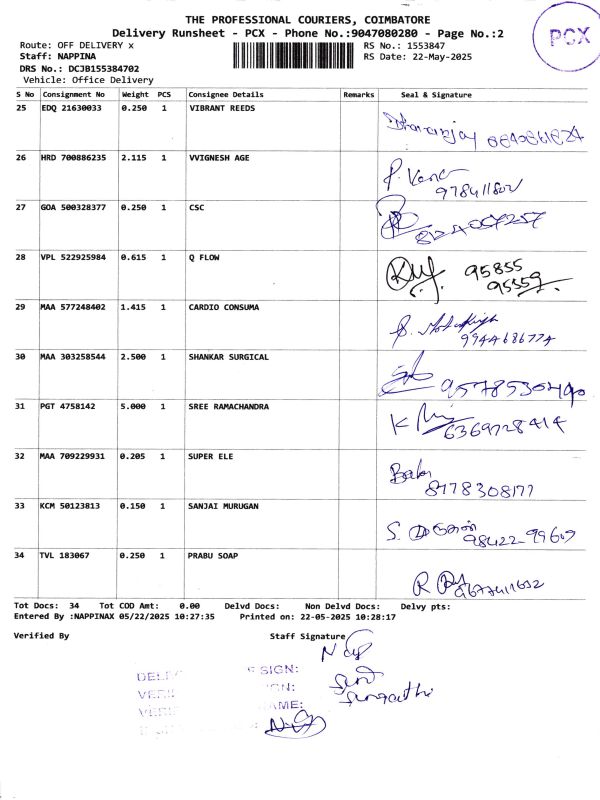 THE PROFESSIONAL COURIERS, COIMBATORE
Delivery Runsheet - PCX - Phone No.:9047080280 - Page No.:2
PCX
Route: OFF DELIVERY x
RS No.: 1553847
Staff: NAPPINA
RS Date: 22-May-2025
DRS No.: DCJB155384702
Vehicle: Office Delivery
S No Consignment No Weight PCS Consignee Details Remarks Seal & Signature
25 EDQ 21630033 0.250 1 VIBRANT REEDS
Dhananjay
26 HRD 700886235 2.115 1 VVIGNESH AGE
27 GOA 500328377 0.250 1 CSC
28 VPL 522925984 0.615 1 Q FLOW
95855
95559
29 MAA 577248402 1.415 1 CARDIO CONSUMA
9944686774
30 MAA 303258544 2.500 1 SHANKAR SURGICAL
31 PGT 4758142 5.000 1 SREE RAMACHANDRA
K
6369728414
32 MAA 709229931 0.205 1 SUPER ELE
Babu
8778308177
33 KCM 50123813 0.150 1 SANJAI MURUGAN
S. முருகன்
34 TVL 183067 0.250 1 PRABU SOAP
R
Tot Docs: 34 Tot COD Amt: 0.00 Delvd Docs: Non Delvd Docs: Delvy pts:
Entered By :NAPPINAX 05/22/2025 10:27:35 Printed on: 22-05-2025 10:28:17
Verified By Staff Signature
SIGN:
Sangeetha